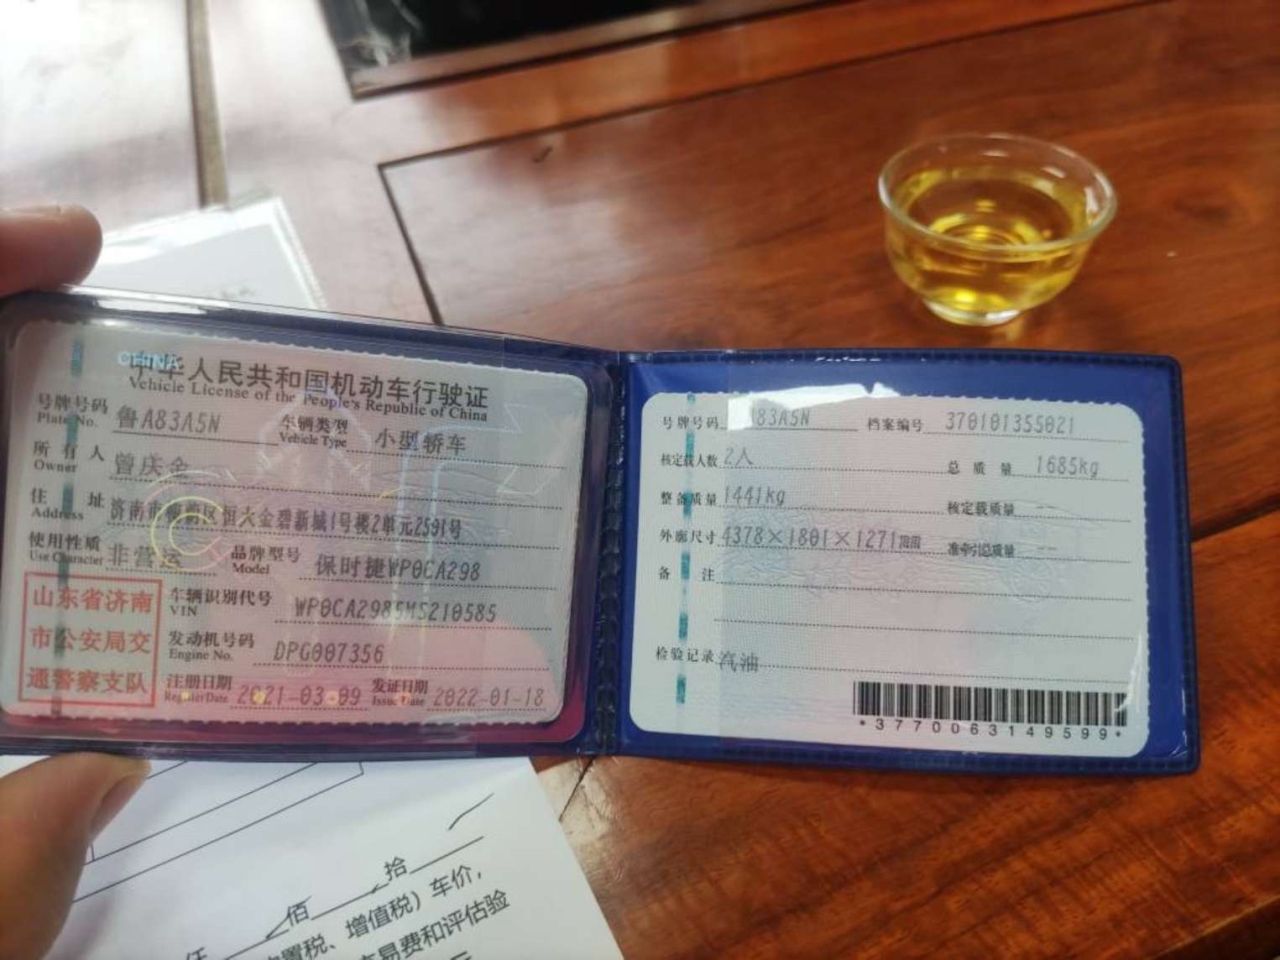 中华人民共和国机动车行驶证
Vehicle License of the People's Republic of China
号牌号码 鲁A83A5N 车辆类型 小型轿车
Plate No. Vehicle Type
所有人 曾庆金
Owner
住址 济南市 区恒大金碧新城1号楼2单元2591号
Address
使用性质 非营运 品牌型号 保时捷WP0CA298
Use Character Model
山东省济南
市公安局交
通警察支队
车辆识别代号 WP0CA2985MS210585
VIN
发动机号码 DPG007356
Engine No.
注册日期 2021-03-09 发证日期 2022-01-18
Register Date Issue Date
号牌号码 A83A5N 档案编号 370101355021
核定载人数 2人 总质量 1685kg
整备质量 1441kg 核定载质量 --
外廓尺寸 4378×1801×1271mm 准牵引总质量 --
备注
检验记录 汽油
*3770063149599*
拾
佰
置税、增值税）车价，
易费和评估验